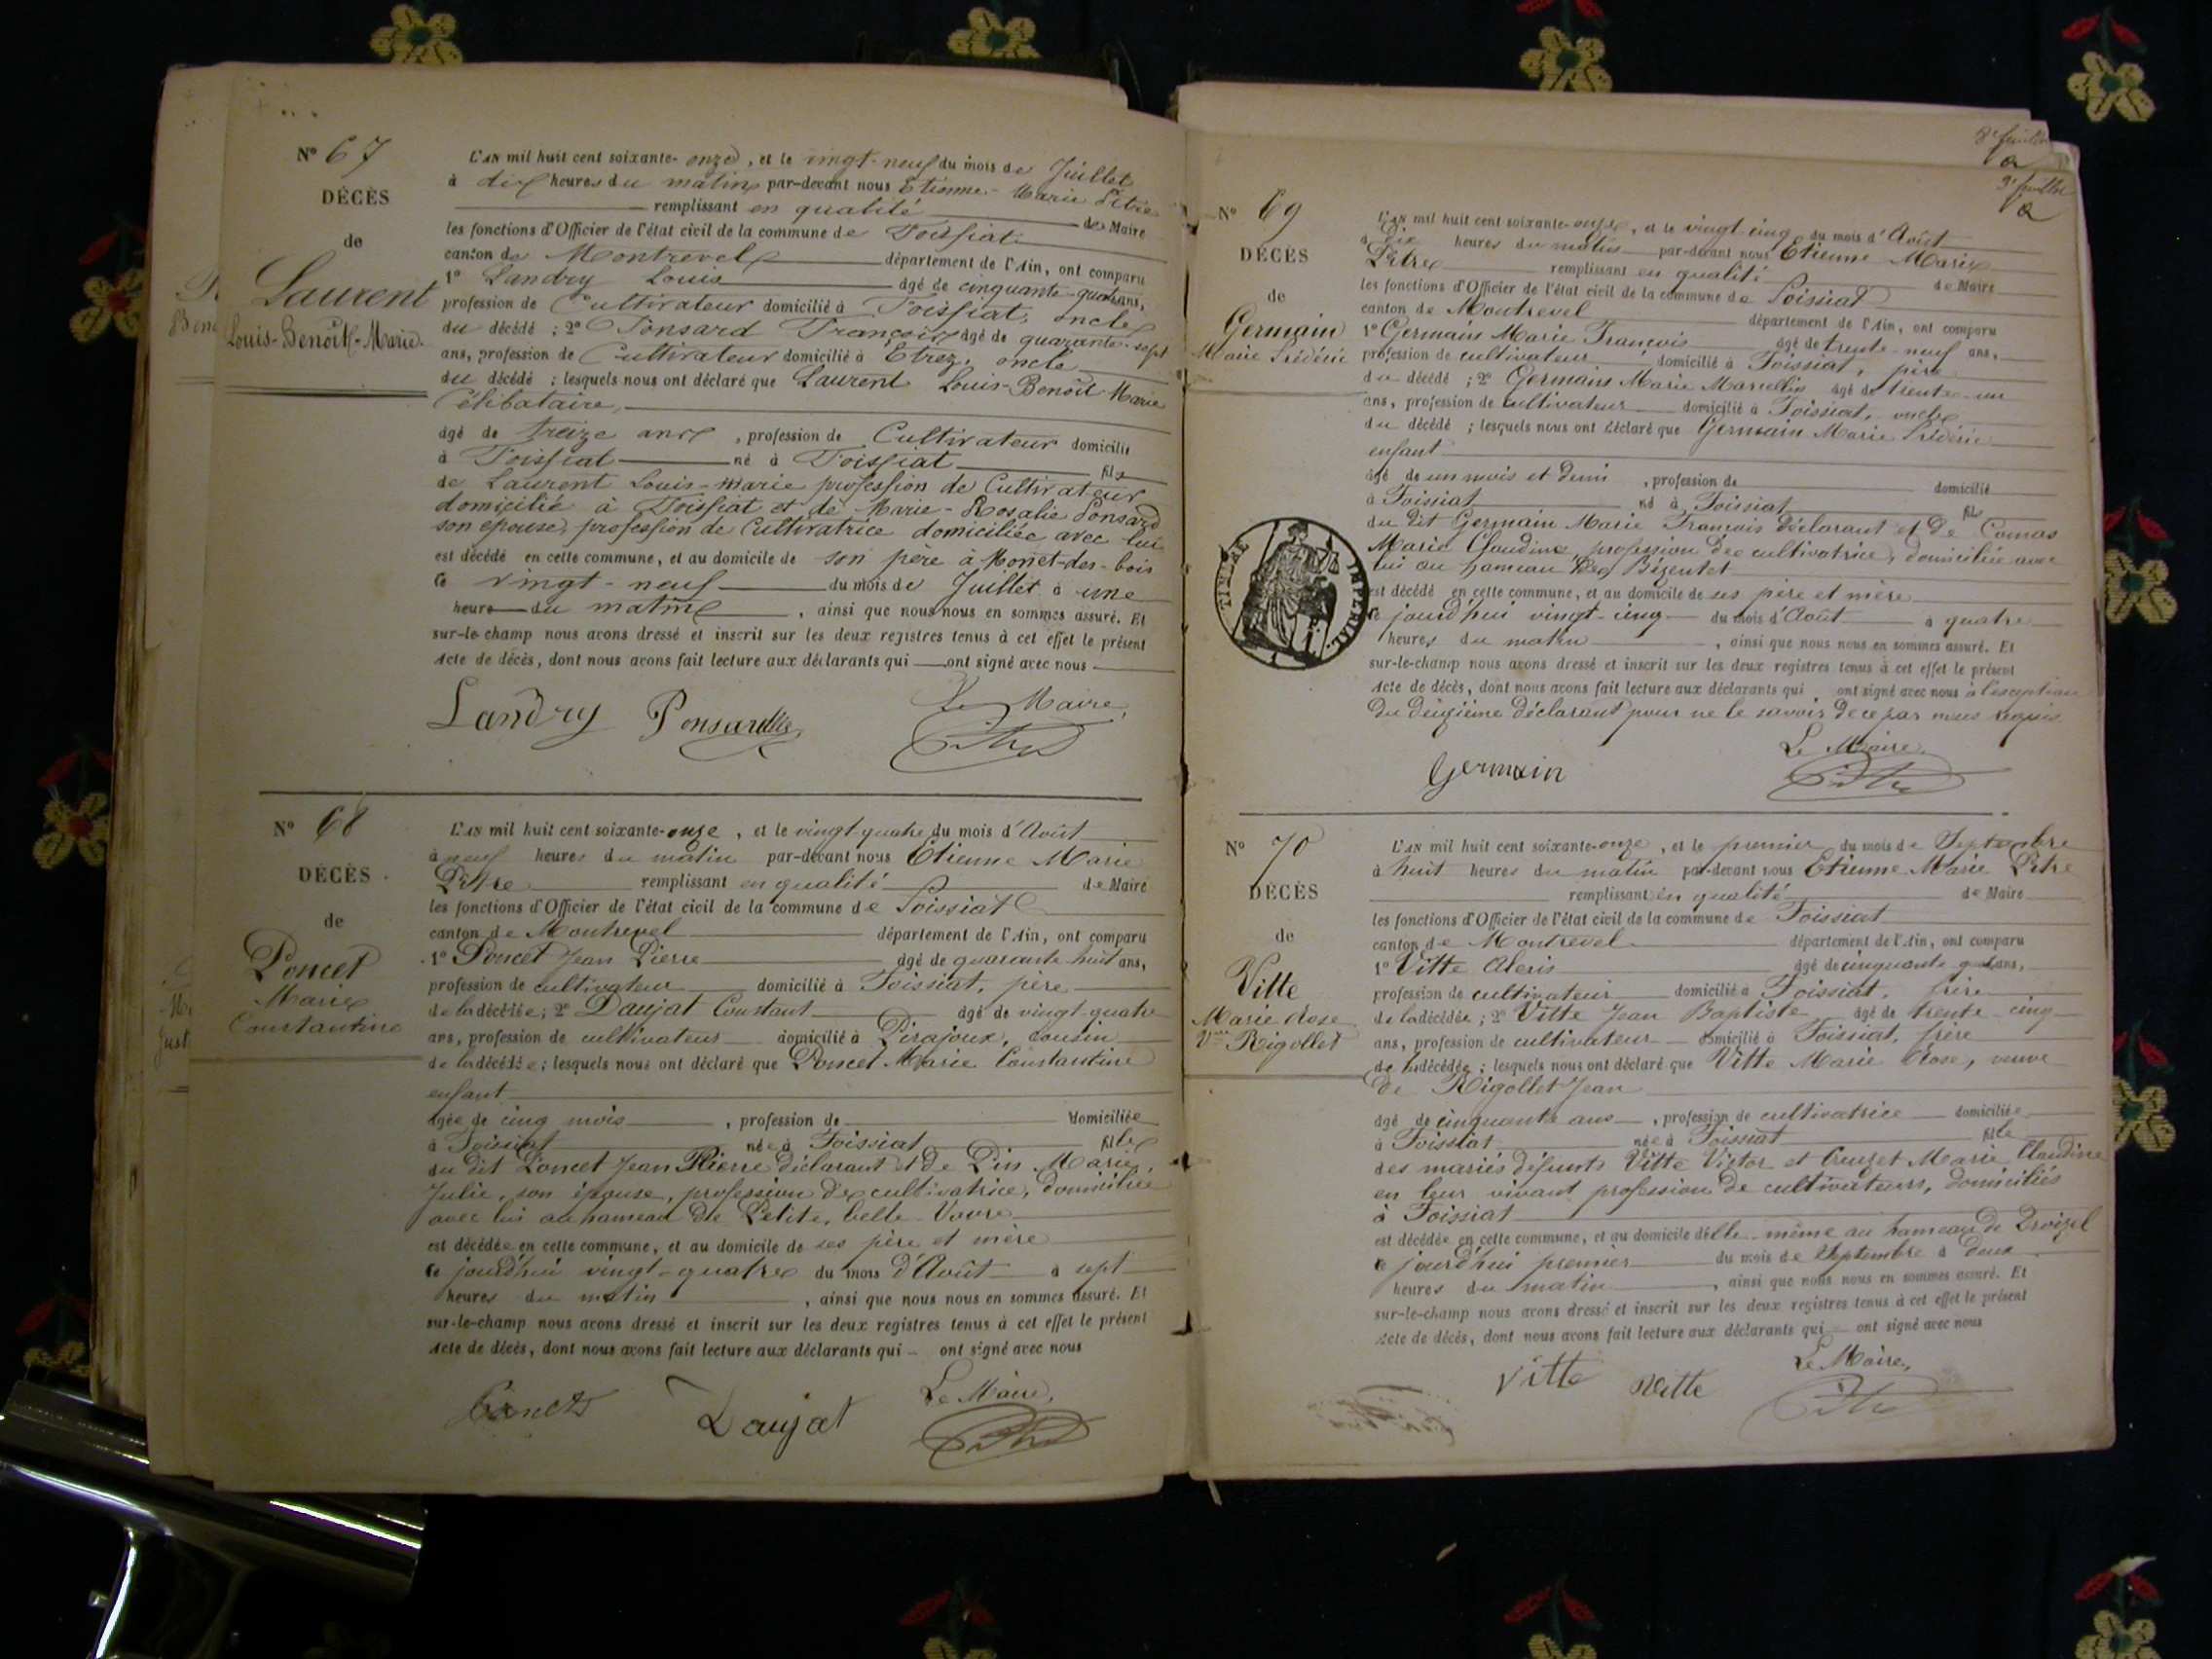 Nº 67
DÉCÈS
de
Laurent
Louis-Benoît-Marie.
L'AN mil huit cent soixante-onze, et le vingt-neuf du mois de Juillet
à dix heures du matin par-devant nous Etienne-Marie Pitre
remplissant en qualité de Maire
les fonctions d'Officier de l'état civil de la commune de Foissiat
canton de Montrevel département de l'Ain, ont comparu
1º Landry Louis âgé de cinquante-quatre ans,
profession de Cultivateur domicilié à Foissiat, oncle
du décédé ; 2º Ponsard François âgé de quarante-sept
ans, profession de Cultivateur domicilié à Etrez, oncle
du décédé ; lesquels nous ont déclaré que Laurent Louis-Benoît-Marie
Célibataire,
âgé de treize ans, profession de Cultivateur domicilié
à Foissiat né à Foissiat fils
de Laurent Louis-Marie profession de Cultivateur
domicilié à Foissiat et de Marie-Rosalie Ponsard
son épouse, profession de Cultivatrice domiciliée avec lui
est décédé en cette commune, et au domicile de son père à Monet-des-bois
le vingt-neuf du mois de Juillet à une
heure du matin, ainsi que nous nous en sommes assuré. Et
sur-le-champ nous avons dressé et inscrit sur les deux registres tenus à cet effet le présent
Acte de décès, dont nous avons fait lecture aux déclarants qui ont signé avec nous
Le Maire,
Landry Ponsard Pitre
Nº 68
DÉCÈS
de
Poncet
Marie
Constantine
L'AN mil huit cent soixante-onze, et le vingt-quatre du mois d'Août
à neuf heures du matin par-devant nous Etienne Marie
Pitre remplissant en qualité de Maire
les fonctions d'Officier de l'état civil de la commune de Foissiat
canton de Montrevel département de l'Ain, ont comparu
1º Poncet Jean Pierre âgé de quarante-huit ans,
profession de cultivateur domicilié à Foissiat, père
de la décédée ; 2º Daujat Constant âgé de vingt-quatre
ans, profession de cultivateur domicilié à Pirajoux, cousin
de la décédée ; lesquels nous ont déclaré que Poncet Marie Constantine
enfant
âgée de cinq mois, profession de domiciliée
à Foissiat née à Foissiat fille
du dit Poncet Jean Pierre déclarant et de Pin Marie
Julie, son épouse, profession de cultivatrice, domiciliée
avec lui au hameau de Petite, belle-Vavre
est décédée en cette commune, et au domicile de ses père et mère
le jourd'hui vingt-quatre du mois d'Août à sept
heures du matin, ainsi que nous nous en sommes assuré. Et
sur-le-champ nous avons dressé et inscrit sur les deux registres tenus à cet effet le présent
Acte de décès, dont nous avons fait lecture aux déclarants qui ont signé avec nous
Le Maire,
Poncet Daujat Pitre
8e feuillet
9e feuillet
Nº 69
DÉCÈS
de
Germain
Marie Frédéric
L'AN mil huit cent soixante-onze, et le vingt-cinq du mois d'Août
à dix heures du matin par-devant nous Etienne Marie
Pitre remplissant en qualité de Maire
les fonctions d'Officier de l'état civil de la commune de Foissiat
canton de Montrevel département de l'Ain, ont comparu
1º Germain Marie François âgé de trente-neuf ans,
profession de cultivateur domicilié à Foissiat, père
du décédé ; 2º Germain Marie Marcellin âgé de trente-un
ans, profession de cultivateur domicilié à Foissiat, oncle
du décédé ; lesquels nous ont déclaré que Germain Marie Frédéric
enfant
âgé de un mois et demi, profession de domicilié
à Foissiat né à Foissiat fils
du dit Germain Marie François déclarant et de Comas
Marie Claudine, profession de cultivatrice, domiciliée avec
lui au hameau des Bézentet
est décédé en cette commune, et au domicile de ses père et mère
le jourd'hui vingt-cinq du mois d'Août à quatre
heures du matin, ainsi que nous nous en sommes assuré. Et
sur-le-champ nous avons dressé et inscrit sur les deux registres tenus à cet effet le présent
Acte de décès, dont nous avons fait lecture aux déclarants qui ont signé avec nous à l'exception
du deuxième déclarant pour ne le savoir de ce par nous requis
Le Maire
Germain Pitre
TIMBRE IMPÉRIAL.
Nº 70
DÉCÈS
de
Vitte
Marie Rose
Vve Rigollet
L'AN mil huit cent soixante-onze, et le premier du mois de Septembre
à huit heures du matin par-devant nous Etienne Marie Pitre
remplissant en qualité de Maire
les fonctions d'Officier de l'état civil de la commune de Foissiat
canton de Montrevel département de l'Ain, ont comparu
1º Vitte Alexis âgé de cinquante quat. ans,
profession de cultivateur domicilié à Foissiat, frère
de la décédée ; 2º Vitte Jean Baptiste âgé de trente-cinq
ans, profession de cultivateur domicilié à Foissiat, frère
de la décédée ; lesquels nous ont déclaré que Vitte Marie Rose, veuve
de Rigollet Jean
âgé de cinquante ans, profession de cultivatrice domiciliée
à Foissiat née à Foissiat fille
des mariés défunts Vitte Victor et Creuzet Marie Claudine
en leur vivant profession de cultivateurs, domiciliés
à Foissiat
est décédée en cette commune, et au domicile d'elle-même au hameau de
le jourd'hui premier du mois de Septembre à deux
heures du matin, ainsi que nous nous en sommes assuré. Et
sur-le-champ nous avons dressé et inscrit sur les deux registres tenus à cet effet le présent
Acte de décès, dont nous avons fait lecture aux déclarants qui ont signé avec nous
Le Maire,
Vitte Vitte Pitre